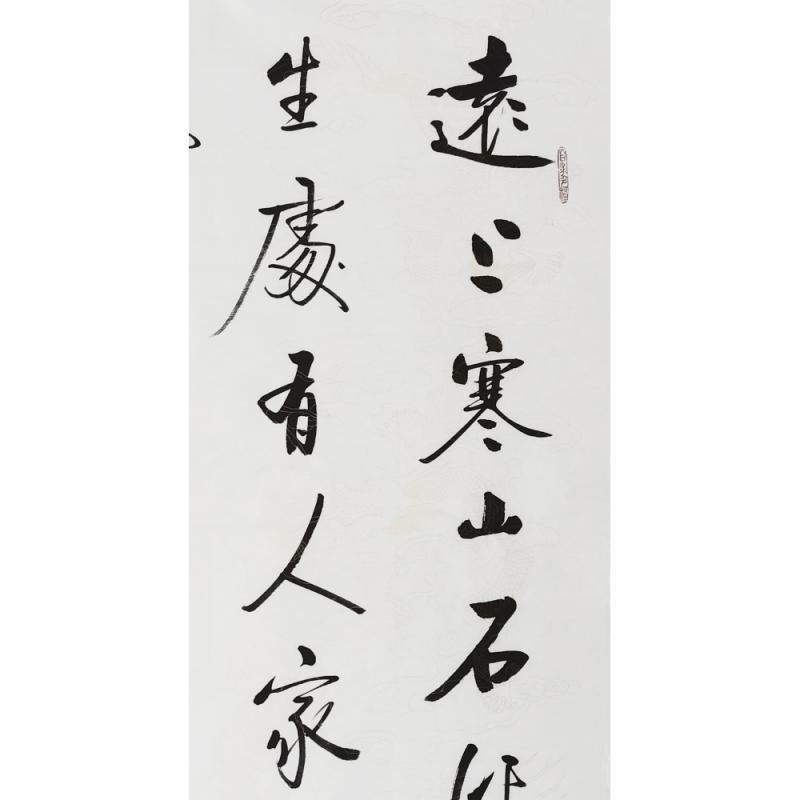 遠上寒山石
生處有人家